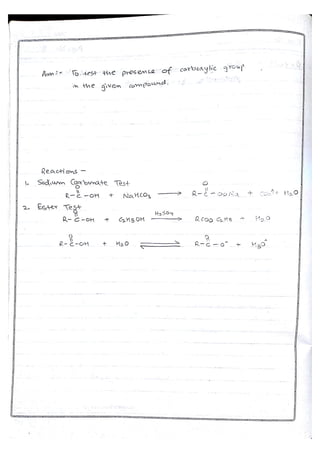 Aim:- To test the presence of carboxylic group
in the given compound.
Reactions -
1. Sodium Carbonate Test
O
R-C-OH + NaHCO3 → R-C-OONa + + H2O
2. Ester Test
O H2SO4
R-C-OH + C2H5OH → RCOOC2H5 - H2O
O O
R-C-OH + H2O ⇌ R-C-O⁻ + H3O⁺